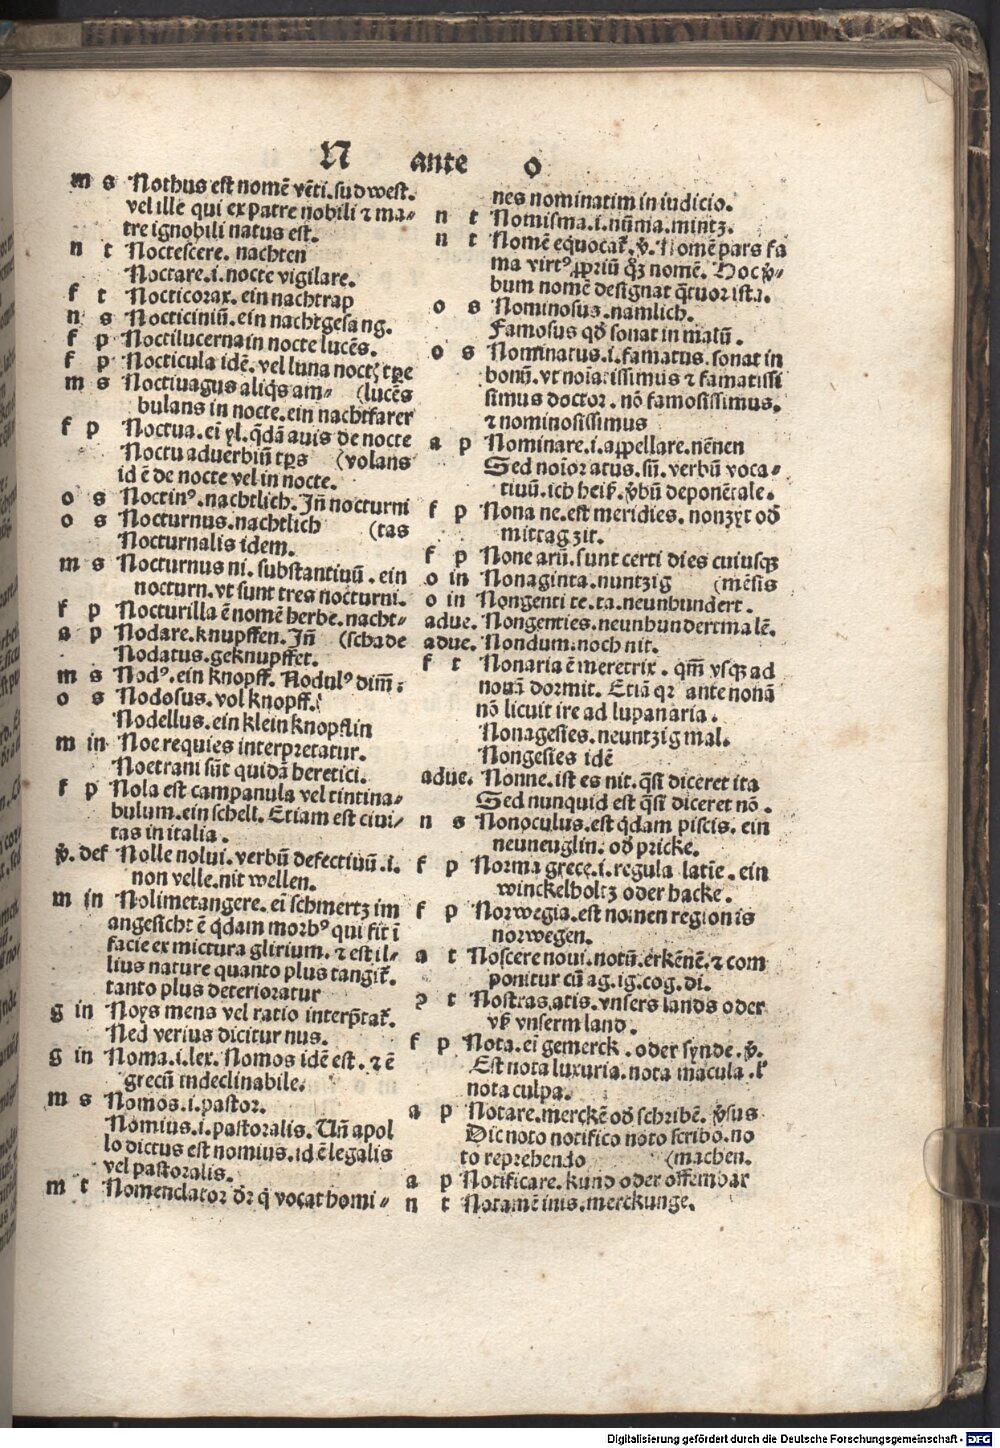 N ante o
m s Nothus est nomē vēti. sudwest.
vel ille qui ex patre nobili ⁊ ma⸗
tre ignobili natus est.
n t Noctescere. nachten
Noctare .i. nocte vigilare.
f t Nocticorax. ein nachtrap
n s Nocticiniū. ein nachtgesang.
f p Noctilucerna in nocte lucēs.
f p Nocticula idē. vel luna nocť tpe
m s Noctivagus aliq̇s am⸗ (lucēs
bulans in nocte. ein nachtfarer
f p Noctua. ei ẏl. q̇dā auis de nocte
Noctu adverbiū tp̄s (volans
id ē de nocte vel in nocte.
o s Noctinꝰ. nachtlich. Jñ nocturni
o s Nocturnus. nachtlich (tas
Nocturnalis idem.
m s Nocturnus ni. substantiuū. ein
nocturn. vt sunt tres nocturni.
f p Nocturilla ē nomē herbe. nacht⸗
a p Nodare. knupffen. Jñ (schade
Nodatus. geknupffet.
m s Nodꝰ. ein knopff. Nodulꝰ dim̄.
o s Nodosus. vol knopff.
Nodellus. ein klein knopflin
m in Noe requies interpretatur.
Noetrani sūt quidā heretici.
f p Nola est campanula vel tintina⸗
bulum. ein schell. Etiam est ciui⸗
tas in italia.
v̄. def Nolle nolui. verbū defectiuū .i.
non velle. nit wellen.
m in Nolimetangere. ei schmertz im
angesicht ē q̇dam morbꝰ qui fit ī
facie ex mictura glirium. ⁊ est il⸗
lius nature quanto plus tangiť.
tanto plus deterioratur
g in Noys mens vel ratio interp̄tať.
Ned verius dicitur nus.
g in Noma .i. lex. Nomos idē est. ⁊ ē
grecū indeclinabile.
m s Nomos .i. pastor.
Nomius .i. pastoralis. Uñ apol
lo dictus est nomius. id ē legalis
vel pastoralis.
m t Nomenclator dr̄ q̇ vocat homi⸗
nes nominatim in iudicio.
n t Nomisma .i. nūma. mintz.
n t Nomē equocať. v̄. Nomē pars fa
ma virtꝰ ꝓpriū q̇ꝫ nomē. Hoc v̄⸗
bum nomē designat q̄tuor ista.
o s Nominosus. namlich.
Famosus qd̄ sonat in malū.
o s Nominatus .i. famatus. sonat in
bonū. vt noiatissimus ⁊ famatissi
simus doctor. nō famosissimus.
⁊ nominosissimus
a p Nominare .i. appellare. nēnen
Sed noīor atus. sū. verbū voca⸗
tiuū. ich heiß. v̄bū deponētale.
f p Nona ne. est meridies. nonzyt od̄
mittag zit.
f p None arū. sunt certi dies cuiusqꝫ
o in Nonaginta. nuntzig (mēsis
o in Nongenti te. ta. neunhundert.
adue. Nongenties. neunhundertmalē.
adue. Nondum. noch nit.
f t Nonaria ē meretrix. qm̄ vsqꝫ ad
nonā dormit. Etiā qꝛ ante nonā
nō licuit ire ad lupanaria.
Nonagesies. neuntzig mal.
Nongesies idē
adue. Nonne. ist es nit. q̄si diceret ita
Sed nunquid est q̄si diceret nō.
n s Nonoculus. est q̇dam piscis. ein
neuneuglin. od̄ pricke.
f p Norma grece .i. regula latīe. ein
winckelholtz oder hacke.
f p Norwegia. est nomen regionis
norwegen.
a t Noscere noui. notū. erkēnē. ⁊ com
ponitur cū ag. ig. cog. di.
ꝛ t Nostras. atis. vnsers lands oder
vß vnserm land.
f p Nota. ei gemerck. oder synde. v̄.
Est nota luxuria. nota macula. ł
nota culpa.
a p Notare. merckē od̄ schribē. v̄sus
Dic noto notifico noto scribo. no
to reprehendo (machen.
a p Notificare. kund oder offembar
n t Notamē inis. merckunge.
Digitalisierung gefördert durch die Deutsche Forschungsgemeinschaft - DFG